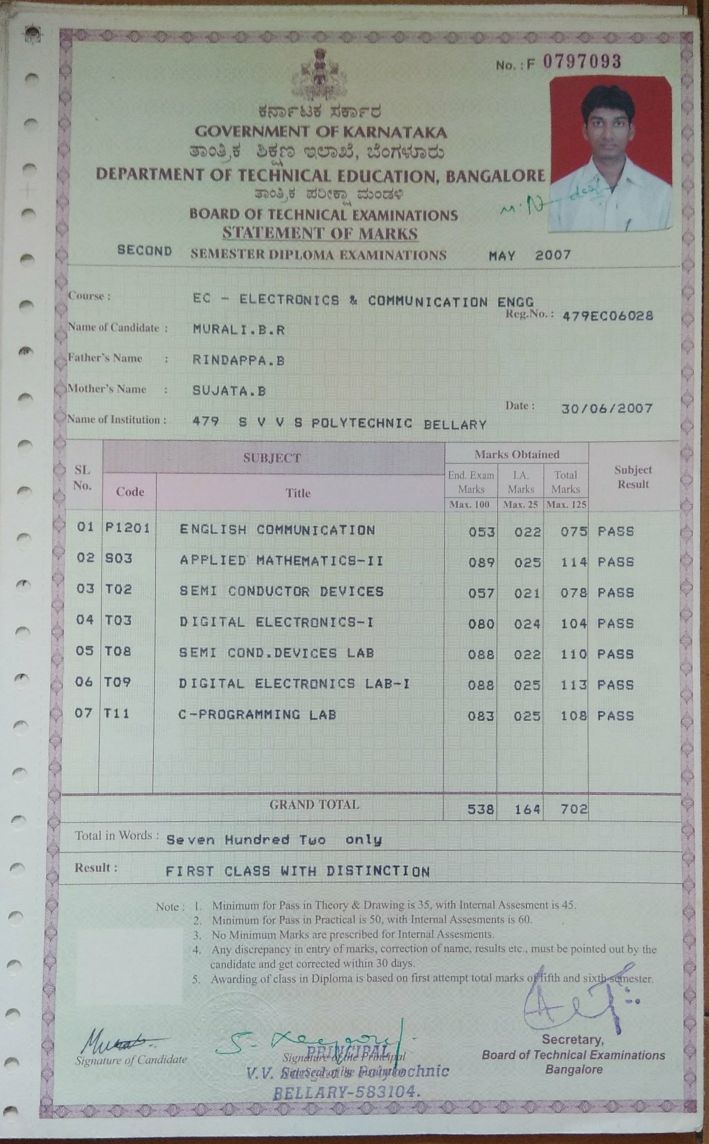 No. : F 0797093
ಕರ್ನಾಟಕ ಸರ್ಕಾರ
GOVERNMENT OF KARNATAKA
ತಾಂತ್ರಿಕ ಶಿಕ್ಷಣ ಇಲಾಖೆ, ಬೆಂಗಳೂರು
DEPARTMENT OF TECHNICAL EDUCATION, BANGALORE
ತಾಂತ್ರಿಕ ಪರೀಕ್ಷಾ ಮಂಡಳಿ
BOARD OF TECHNICAL EXAMINATIONS
STATEMENT OF MARKS
SECOND SEMESTER DIPLOMA EXAMINATIONS MAY 2007
Course : EC - ELECTRONICS & COMMUNICATION ENGG
Reg.No. : 479EC06028
Name of Candidate : MURALI.B.R
Father's Name : RINDAPPA.B
Mother's Name : SUJATA.B
Date : 30/06/2007
Name of Institution : 479 S V V S POLYTECHNIC BELLARY
SL No. SUBJECT Marks Obtained Subject Result
Code Title End. Exam Marks I.A. Marks Total Marks
Max. 100 Max. 25 Max. 125
01 P1201 ENGLISH COMMUNICATION 053 022 075 PASS
02 S03 APPLIED MATHEMATICS-II 089 025 114 PASS
03 T02 SEMI CONDUCTOR DEVICES 057 021 078 PASS
04 T03 DIGITAL ELECTRONICS-I 080 024 104 PASS
05 T08 SEMI COND.DEVICES LAB 088 022 110 PASS
06 T09 DIGITAL ELECTRONICS LAB-I 088 025 113 PASS
07 T11 C-PROGRAMMING LAB 083 025 108 PASS
GRAND TOTAL 538 164 702
Total in Words : Seven Hundred Two only
Result : FIRST CLASS WITH DISTINCTION
Note : 1. Minimum for Pass in Theory & Drawing is 35, with Internal Assesment is 45.
2. Minimum for Pass in Practical is 50, with Internal Assesments is 60.
3. No Minimum Marks are prescribed for Internal Assesments.
4. Any discrepancy in entry of marks, correction of name, results etc., must be pointed out by the
candidate and get corrected within 30 days.
5. Awarding of class in Diploma is based on first attempt total marks of fifth and sixth semester.
Signature of Candidate
Signature of the Principal
PRINCIPAL
Polytechnic
BELLARY-583104.
Secretary,
Board of Technical Examinations
Bangalore